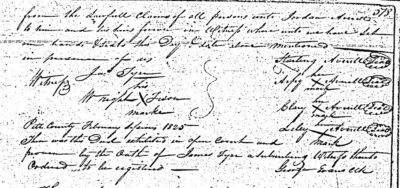 from the lawfull Claims of all persons unto Jordan Averitt 578
to him and his heirs forever in Witness where unto we have Set
our hands & Seals this Day & date above mentioned
in presence of us Starling Averitt Seal
Jas Tyer her
Witness his Appy X Averitt Seal
mark
Wright X Tison her
marke Clary X Averitt Seal
mark
Pitt County February Sessions 1825 her
Then was this Deed exhibited in open Court and Lilay X Averitt Seal
proven by the Oath of James Tyer a Subscribing Witness thereto mark
Ordered to be registered George Evans Clk